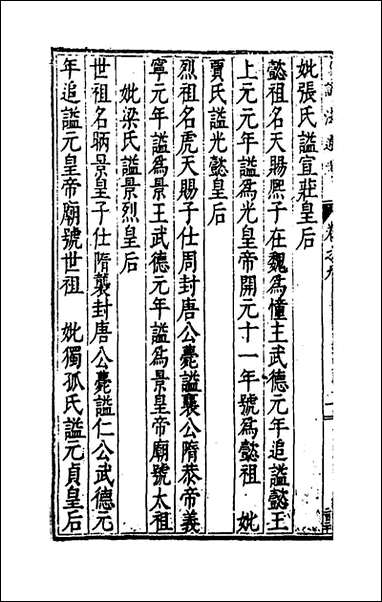 妣張氏諡宣莊皇后
懿祖名天賜熙子在魏爲憧主武德元年追諡懿王
上元元年諡爲光皇帝開元十一年號爲懿祖　妣
賈氏諡光懿皇后
烈祖名虎天賜子仕周封唐公薨諡襄公隋恭帝義
寧元年諡爲景王武德元年諡爲景皇帝廟號太祖
妣梁氏諡景烈皇后
世祖名昞景皇子仕隋襲封唐公薨諡仁公武德元
年追諡元皇帝廟號世祖　妣獨孤氏諡元貞皇后